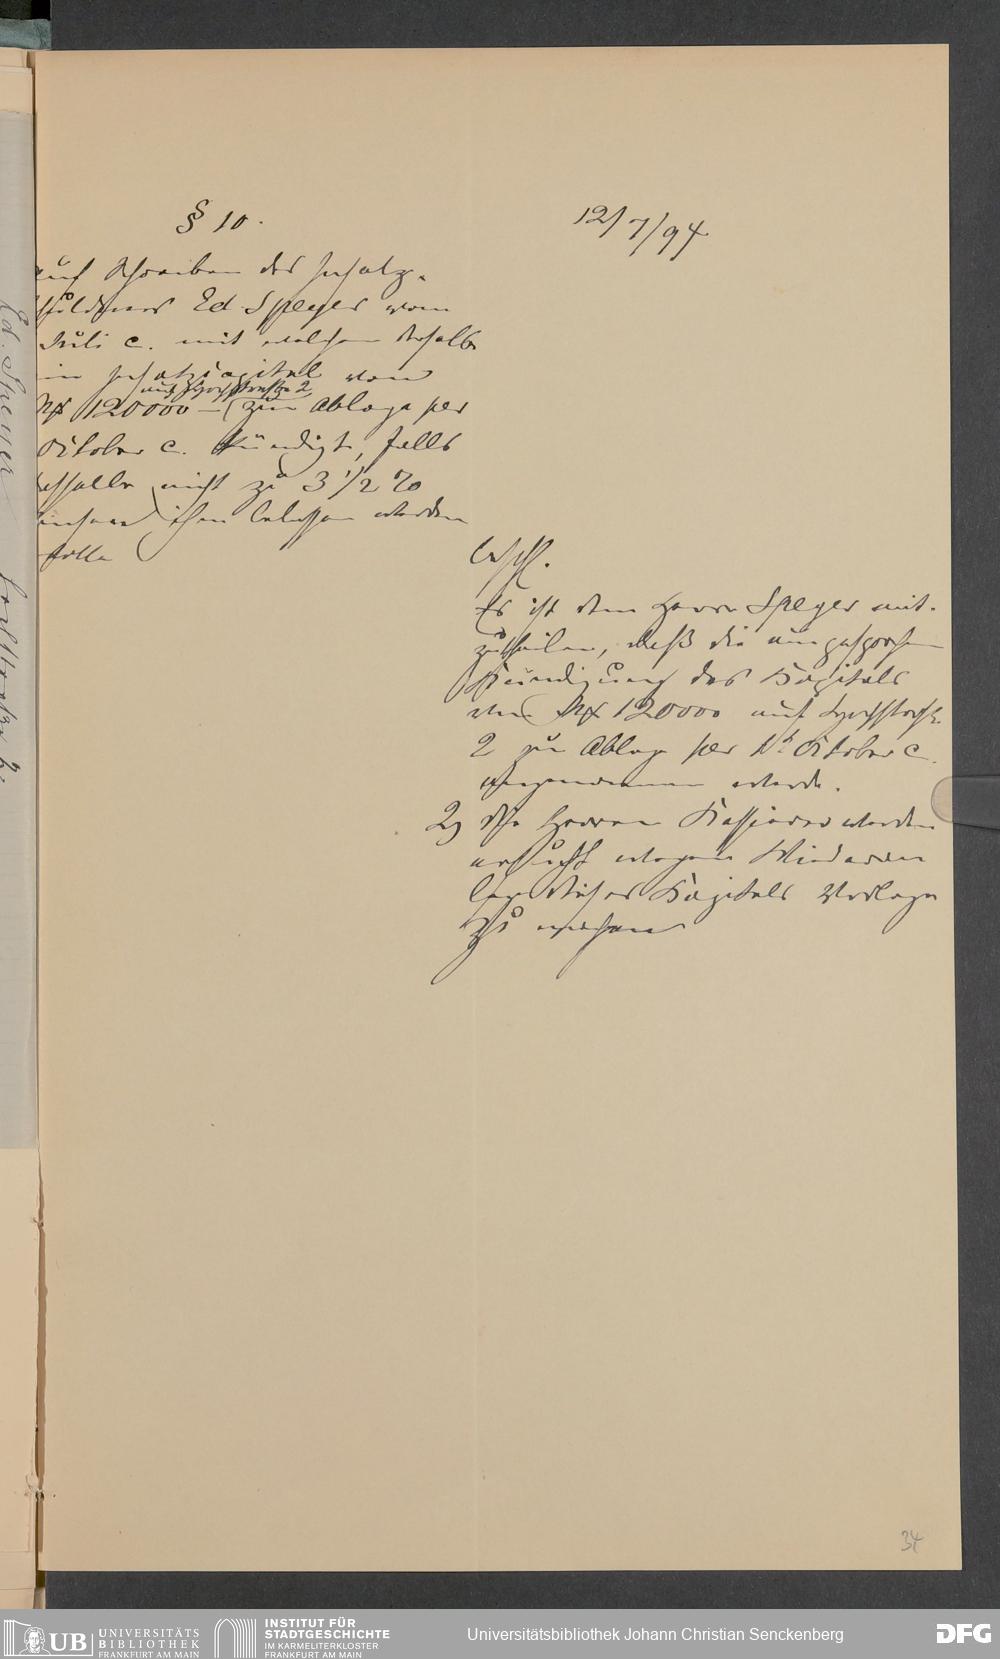 § 10.
12/7/94
auf Schreiben des Insatz-
schuldners Ed Speyer vom
Juli c. mit welchem derselbe
ein Insatzcapital von
auf Hochstraße 2
Mk 120000 – zur Ablage per
October c. kündigt, falls
dasselbe nicht zu 3 1/2 %
ihm belassen werden
solle
beschl.
Es ist dem Herrn Speyer mit-
zutheilen, daß die
Kündigung des Kapitals
von Mk 120000 auf Hochstraße
2 zur Ablage per 1t October c.
angenommen werde.
2) die Herren Kassierer werden
ersucht wegen Wiederan
lage dieses Kapitals Vorlage
zu machen
34
Ed. Speyer Hochstraße 2.
UB UNIVERSITÄTS
BIBLIOTHEK
FRANKFURT AM MAIN
INSTITUT FÜR
STADTGESCHICHTE
IM KARMELITERKLOSTER
FRANKFURT AM MAIN
Universitätsbibliothek Johann Christian Senckenberg
DFG